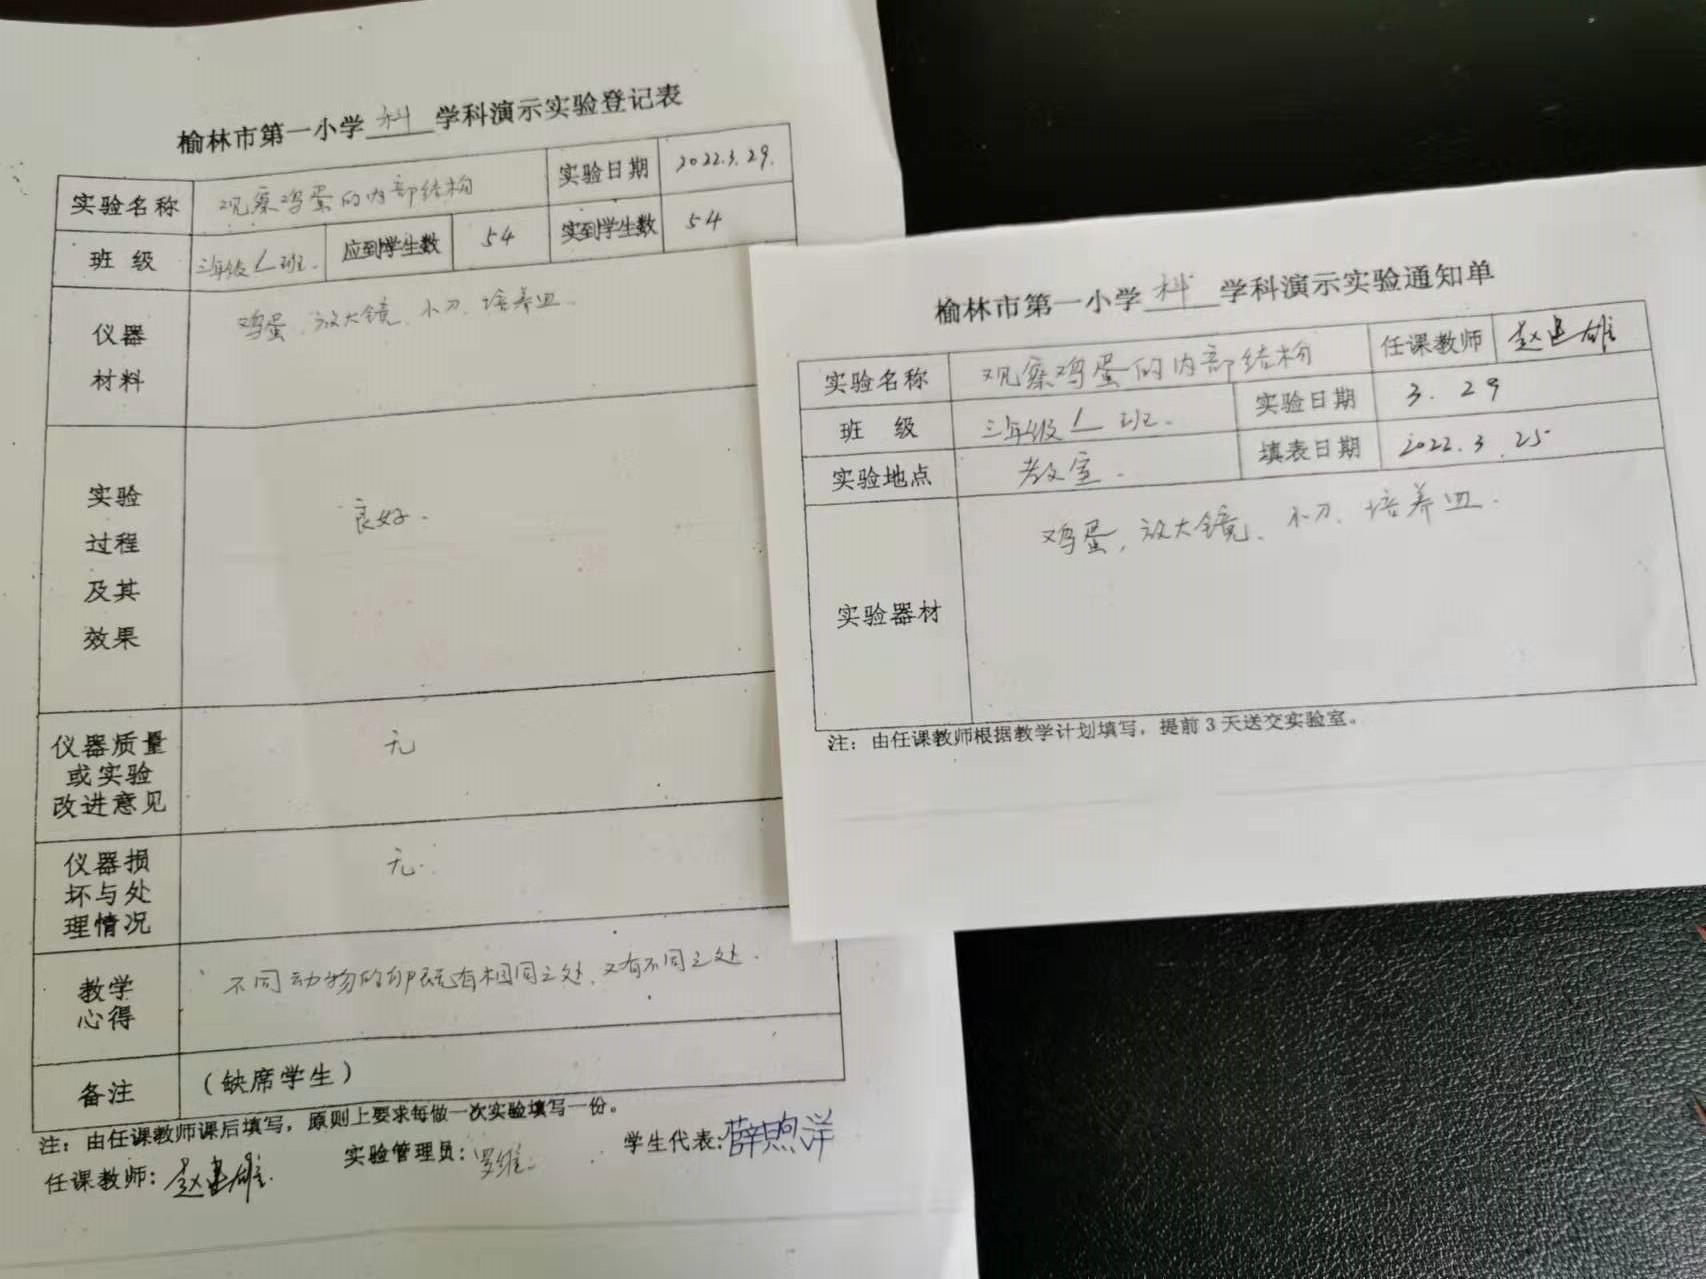 榆林市第一小学 科 学科演示实验登记表
实验名称 观察鸡蛋的内部结构 实验日期 2022.3.29.
班 级 三年级 班. 应到学生数 54 实到学生数 54
仪器
材料
鸡蛋、放大镜、小刀、培养皿.
实验
过程
及其
效果
良好.
仪器质量
或实验
改进意见
无
仪器损
坏与处
理情况
无.
教学
心得
不同动物的卵既有相同之处、又有不同之处.
备注 (缺席学生)
注：由任课教师课后填写，原则上要求每做一次实验填写一份。
任课教师: 赵建雄. 实验管理员: 学生代表: 薛煦洋
榆林市第一小学 科 学科演示实验通知单
实验名称 观察鸡蛋的内部结构 任课教师 赵建雄
班 级 三年级 班. 实验日期 3. 29
实验地点 教室. 填表日期 2022.3.25
实验器材 鸡蛋, 放大镜、小刀、培养皿.
注：由任课教师根据教学计划填写，提前3天送交实验室。